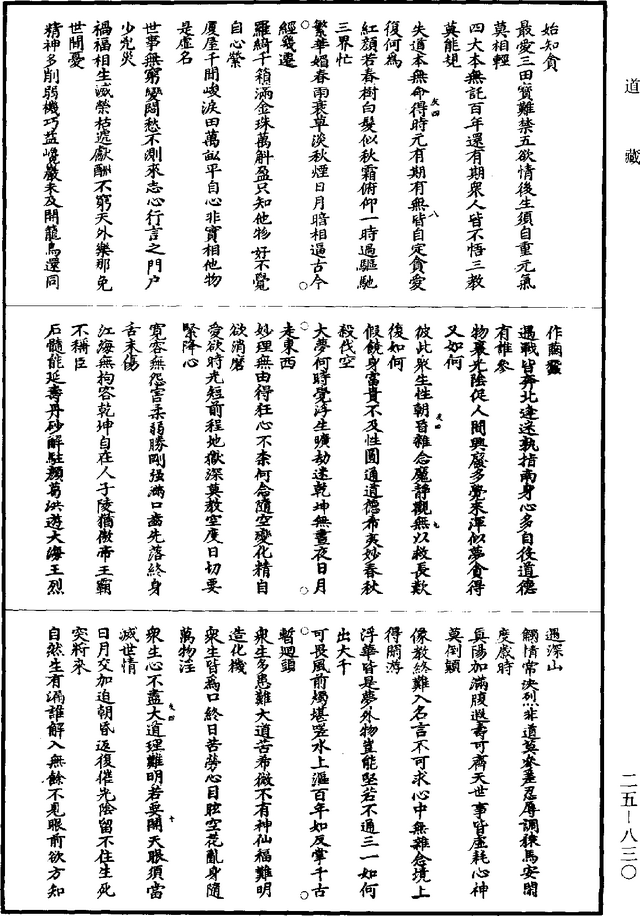 道藏
始知貪
最愛三田寶難禁五欲情後生須自重元氣
莫相輕
四大本無託百年還有期衆人皆不悟三教
莫能規
失道本無命得時元有期有無皆自定貪愛
復何爲
紅顔若春樹白髮似秋霜俯仰一時過驅馳
三界忙
繁華媚春雨衰草淡秋煙日月暗相逼古今
經幾遷
羅綺千箱滿金珠萬斛盈只知他物好不覺
自心縈
厦屋千間峻淚田萬畝平自心非實相他物
是虛名
世事無窮變悶愁不測來志心行言之門户
少兇災
禍福相生滅榮枯遞獻酬不窮天外樂那免
世間憂
精神多削弱機巧益巉巖未及開籠鳥還同
作繭蠶
遇戰皆奔北逢迷執指南身心多自役道德
有誰參
物裏光陰促人間興廢多覺來渾似夢貪得
又如何
彼此衆生性朝昏雜念魔靜觀無以救長歎
後如何
假饒身富貴不及性圓通道德希夷妙春秋
殺伐空
大夢何時覺浮生曠劫迷乾坤無晝夜日月
走東西
妙理無由得狂心不柰何念隨空變化精自
欲消磨
愛欲時光短前程地獄深莫教空度日切要
緊降心
寛容無怨害柔弱勝剛强滿口齒先落終身
舌未傷
江海無拘客乾坤自在人子陵猶傲帝王霸
不稱臣
石髓能延壽丹砂解駐顔葛洪遊大海王烈
遇深山
觸情常決烈非道莫參差忍辱調猿馬安閑
度歲時
真陽加滿腹遐壽可齊天世事皆虛耗心神
莫倒顛
像教終難入名言不可求心中無雜念境上
得閑游
浮華皆是夢外物豈能堅若不通三一如何
出大千
可畏風前燭堪嗟水上漚百年如反掌千古
暫迴頭
衆生多患難大道苦希微不有神仙福難明
造化機
衆生皆爲口終日苦勞心目眩空花亂身隨
萬物淫
衆生心不盡大道理難明若要開天眼須當
滅世情
日月交加迫朝昏返復催光陰留不住生死
突將來
自然生有漏誰解入無餘不見眼前欲方知
二五—八三〇